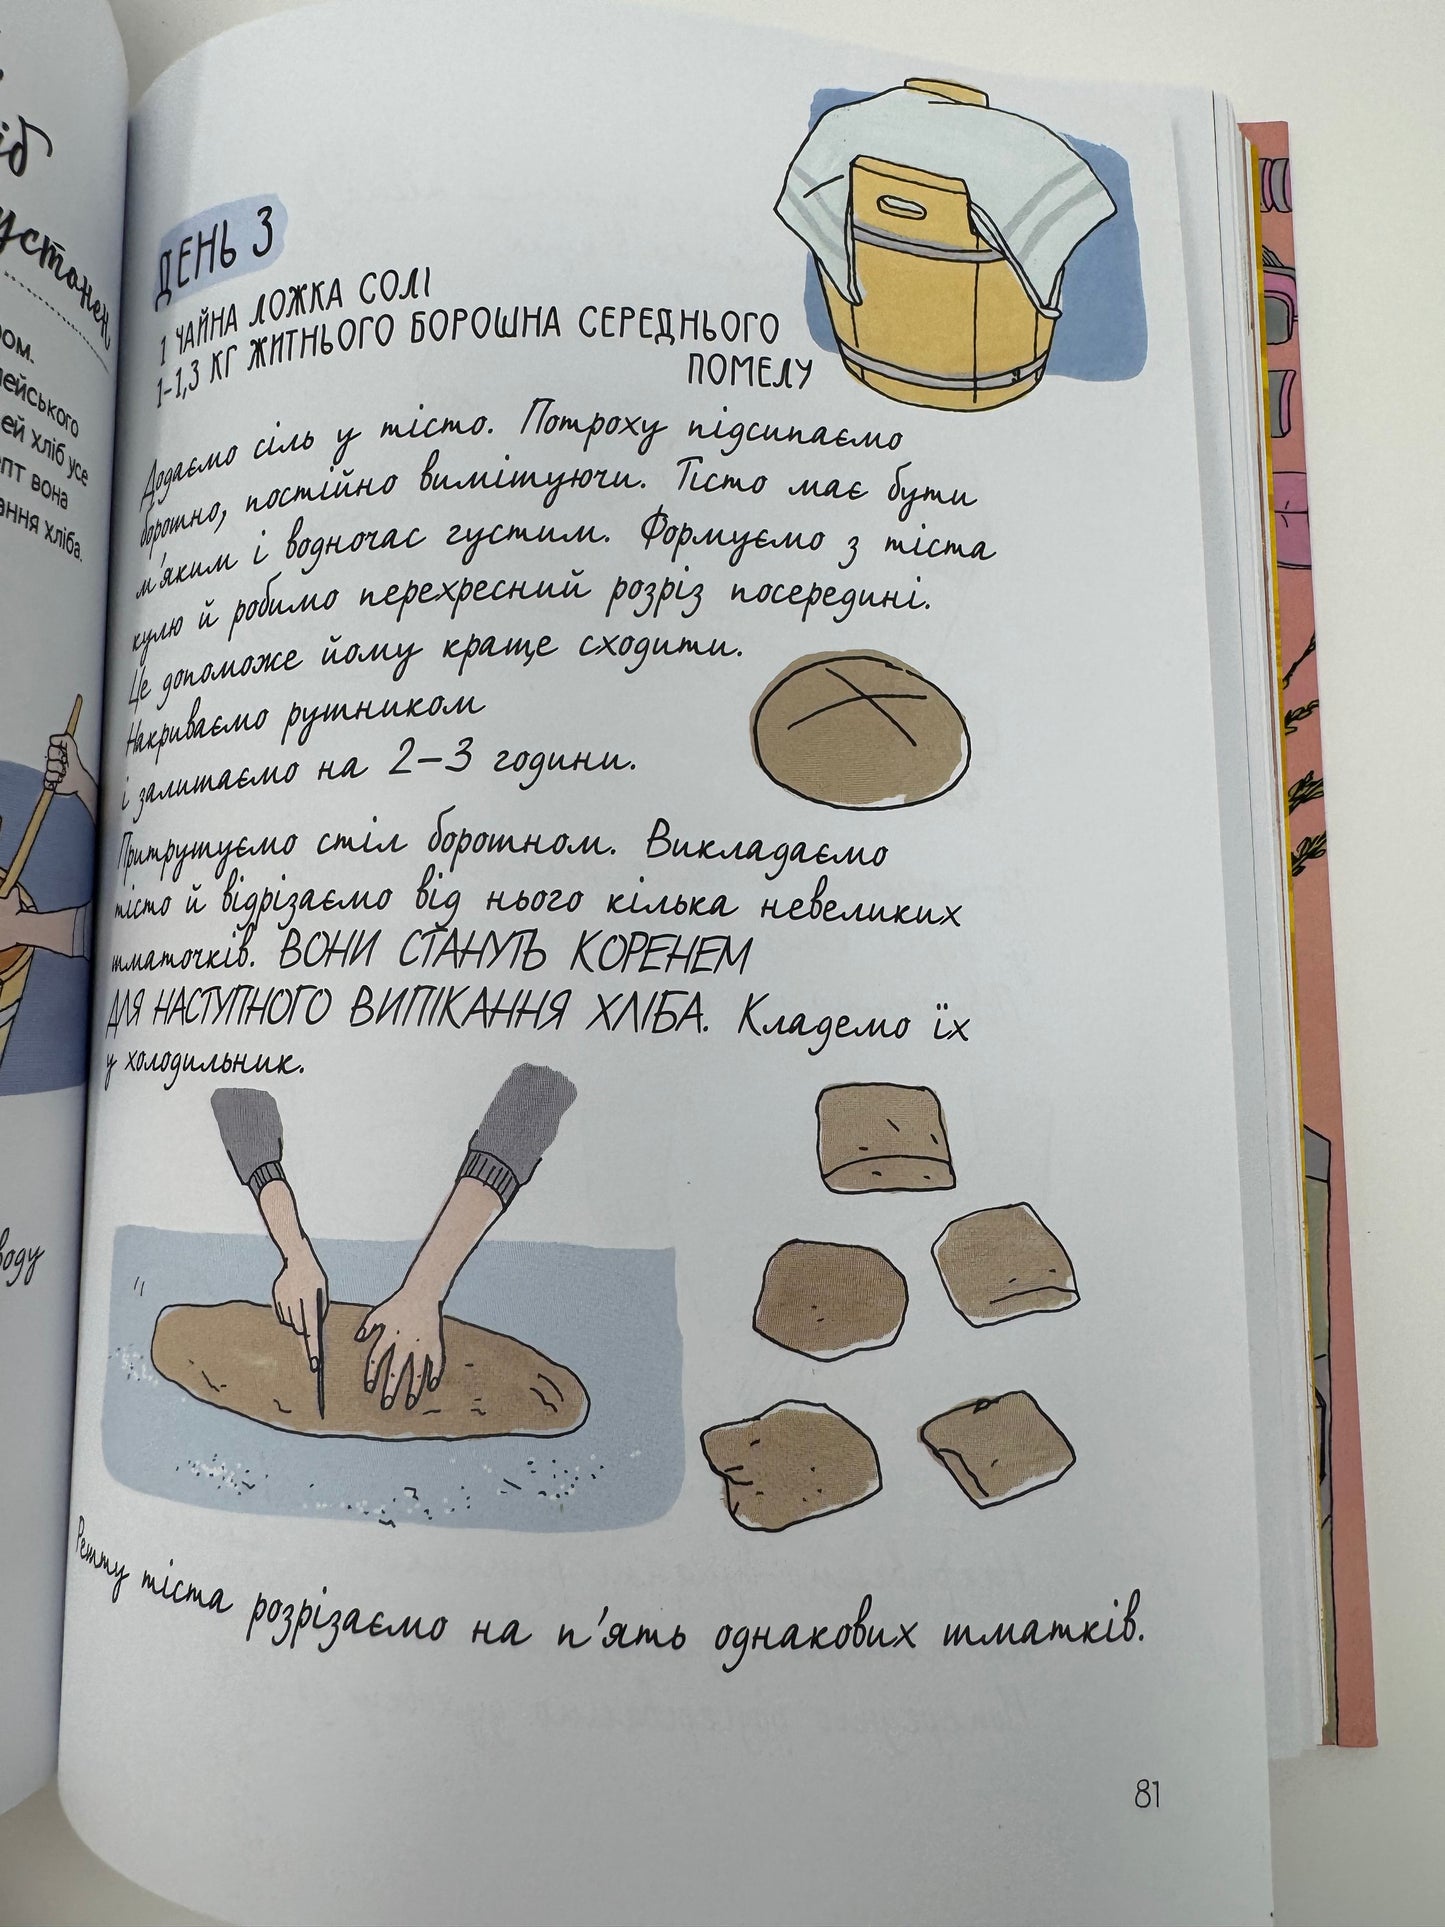 іб
устонен
ром.
пейського
ей хліб усе
епт вона
ання хліба.
воду
ДЕНЬ 3
1 ЧАЙНА ЛОЖКА СОЛІ
1–1,3 КГ ЖИТНЬОГО БОРОШНА СЕРЕДНЬОГО
ПОМЕЛУ
Додаємо сіль у тісто. Потроху підсипаємо
борошно, постійно вимішуючи. Тісто має бути
м'яким і водночас густим. Формуємо з тіста
кулю й робимо перехресний розріз посередині.
Це допоможе йому краще сходити.
Накриваємо рушником
і залишаємо на 2–3 години.
Притрушуємо стіл борошном. Викладаємо
тісто й відрізаємо від нього кілька невеликих
шматочків. ВОНИ СТАНУТЬ КОРЕНЕМ
ДЛЯ НАСТУПНОГО ВИПІКАННЯ ХЛІБА. Кладемо їх
у холодильник.
Решту тіста розрізаємо на п'ять однакових шматків.
81